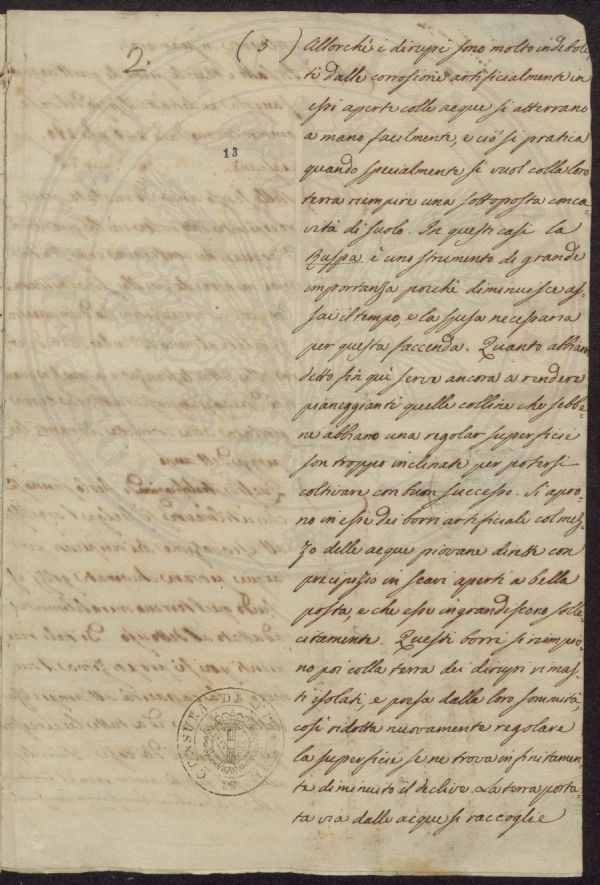 2.
(3) Allorchè i dirupi sono molto indebole-
ti dalle corrosioni artificialmente in
essi aperte colle acque si atterrano
a mano facilmente, e ciò si pratica
13
quando specialmente si vuol colla loro
terra riempire una sottoposta conca-
vità di suolo. In questi casi la
Ruspa è uno strumento di grande
importanza poichè diminuisce as-
sai il tempo, e la spesa necessaria
per questa faccenda. Quanto abbiam
detto fin quì serve ancora a rendere
pianeggianti quelle colline che sebbe-
ne abbiano una regolar superficie
son troppo inclinate per potersi
coltivare con buon successo. Si apro-
no in esse dei borri artificiali col mez-
zo delle acque piovane dirette con
precipizio in scavi aperti a bella
posta, e che esse ingrandiscono solle-
citamente. Questi borri si riempio-
no poi colla terra dei dirupi rimas-
ti isolati, e presa dalla loro sommità,
così ridotta nuovamente regolare
la superficie se ne trova infinitamen-
te diminuito il declive. La terra porta-
ta via dalle acque si raccoglie